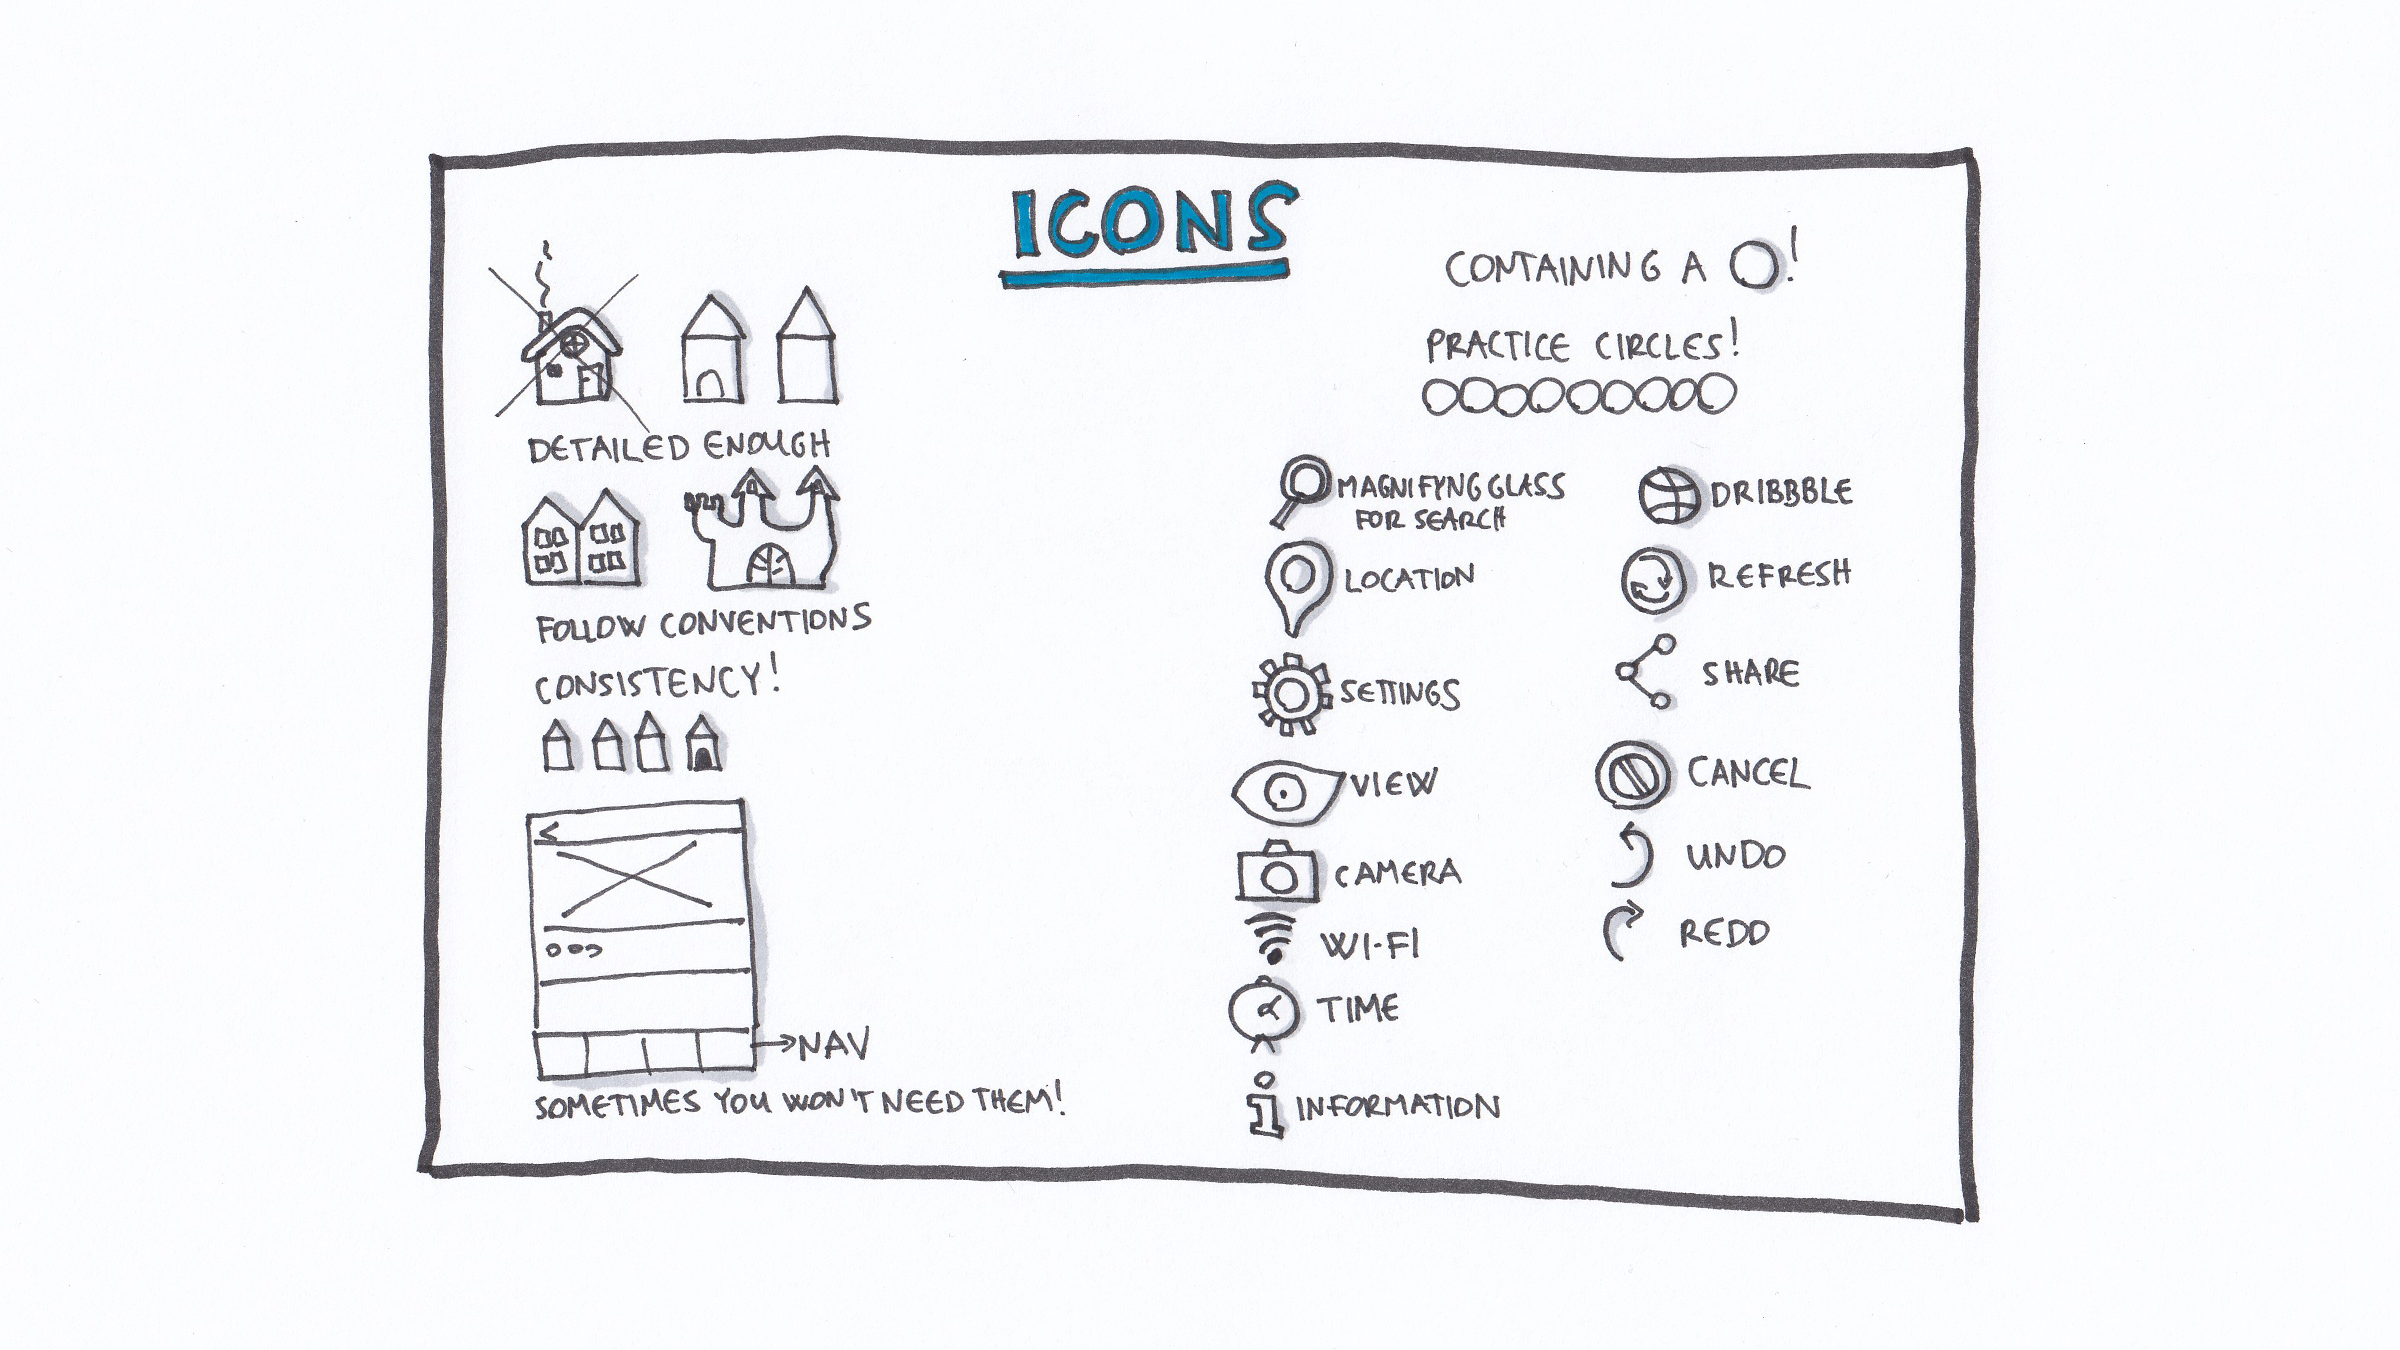 ICONS
DETAILED ENOUGH
FOLLOW CONVENTIONS
CONSISTENCY!
NAV
SOMETIMES YOU WON'T NEED THEM!
CONTAINING A O!
PRACTICE CIRCLES!
MAGNIFYNG GLASS
FOR SEARCH
LOCATION
SETTINGS
VIEW
CAMERA
WI-FI
TIME
INFORMATION
DRIBBBLE
REFRESH
SHARE
CANCEL
UNDO
REDO